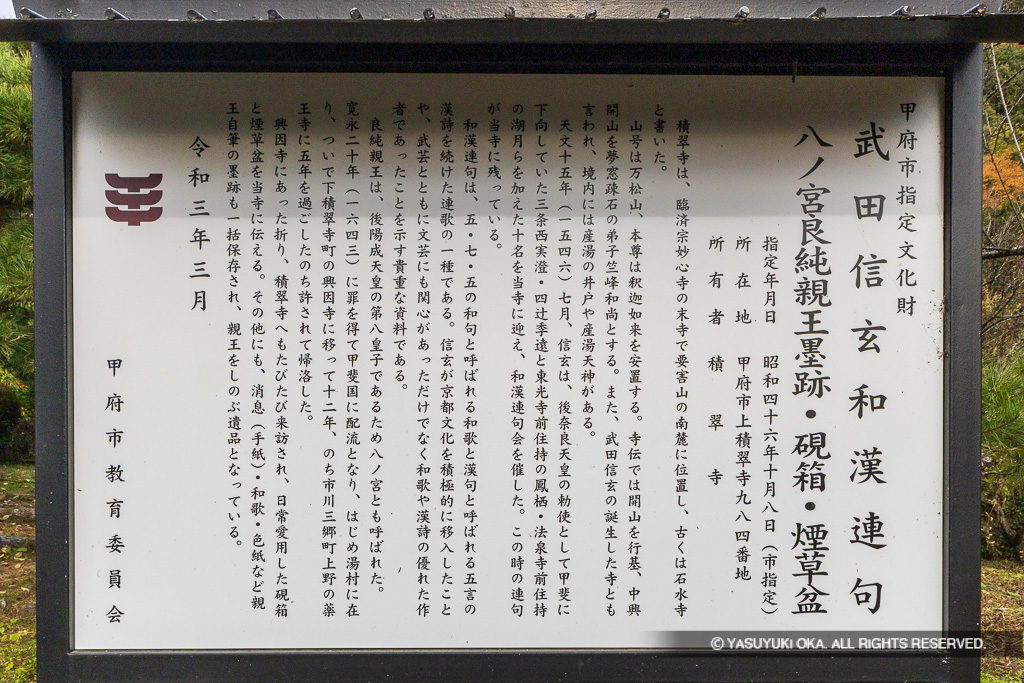 甲府市指定文化財
武田信玄和漢連句
八ノ宮良純親王墨跡・硯箱・煙草盆
指定年月日　昭和四十六年十月八日（市指定）
所在地　甲府市上積翠寺九八四番地
所有者　積翠寺
積翠寺は、臨済宗妙心寺の末寺で要害山の南麓に位置し、古くは石水寺
と書いた。
山号は万松山、本尊は釈迦如来を安置する。寺伝では開山を行基、中興
開山を夢窓疎石の弟子竺峰和尚とする。また、武田信玄の誕生した寺とも
言われ、境内には産湯の井戸や産湯天神がある。
天文十五年（一五四六）七月、信玄は、後奈良天皇の勅使として甲斐に
下向していた三条西実澄・四辻季遠と東光寺前住持の鳳栖・法泉寺前住持
の湖月らを加えた十名を当寺に迎え、和漢連句会を催した。この時の連句
が当寺に残っている。
和漢連句は、五・七・五の和句と呼ばれる和歌と漢句と呼ばれる五言の
漢詩を続けた連歌の一種である。信玄が京都文化を積極的に移入したこと
や、武芸とともに文芸にも関心があっただけでなく和歌や漢詩の優れた作
者であったことを示す貴重な資料である。
良純親王は、後陽成天皇の第八皇子であるため八ノ宮とも呼ばれた。
寛永二十年（一六四三）に罪を得て甲斐国に配流となり、はじめ湯村に在
り、ついで下積翠寺町の興因寺に移って十二年、のち市川三郷町上野の薬
王寺に五年を過ごしたのち許されて帰洛した。
興因寺にあった折り、積翠寺へもたびたび来訪され、日常愛用した硯箱
と煙草盆を当寺に伝える。その他にも、消息（手紙）・和歌・色紙など親
王自筆の墨跡も一括保存され、親王をしのぶ遺品となっている。
令和三年三月
甲府市教育委員会
© YASUYUKI OKA. ALL RIGHTS RESERVED.